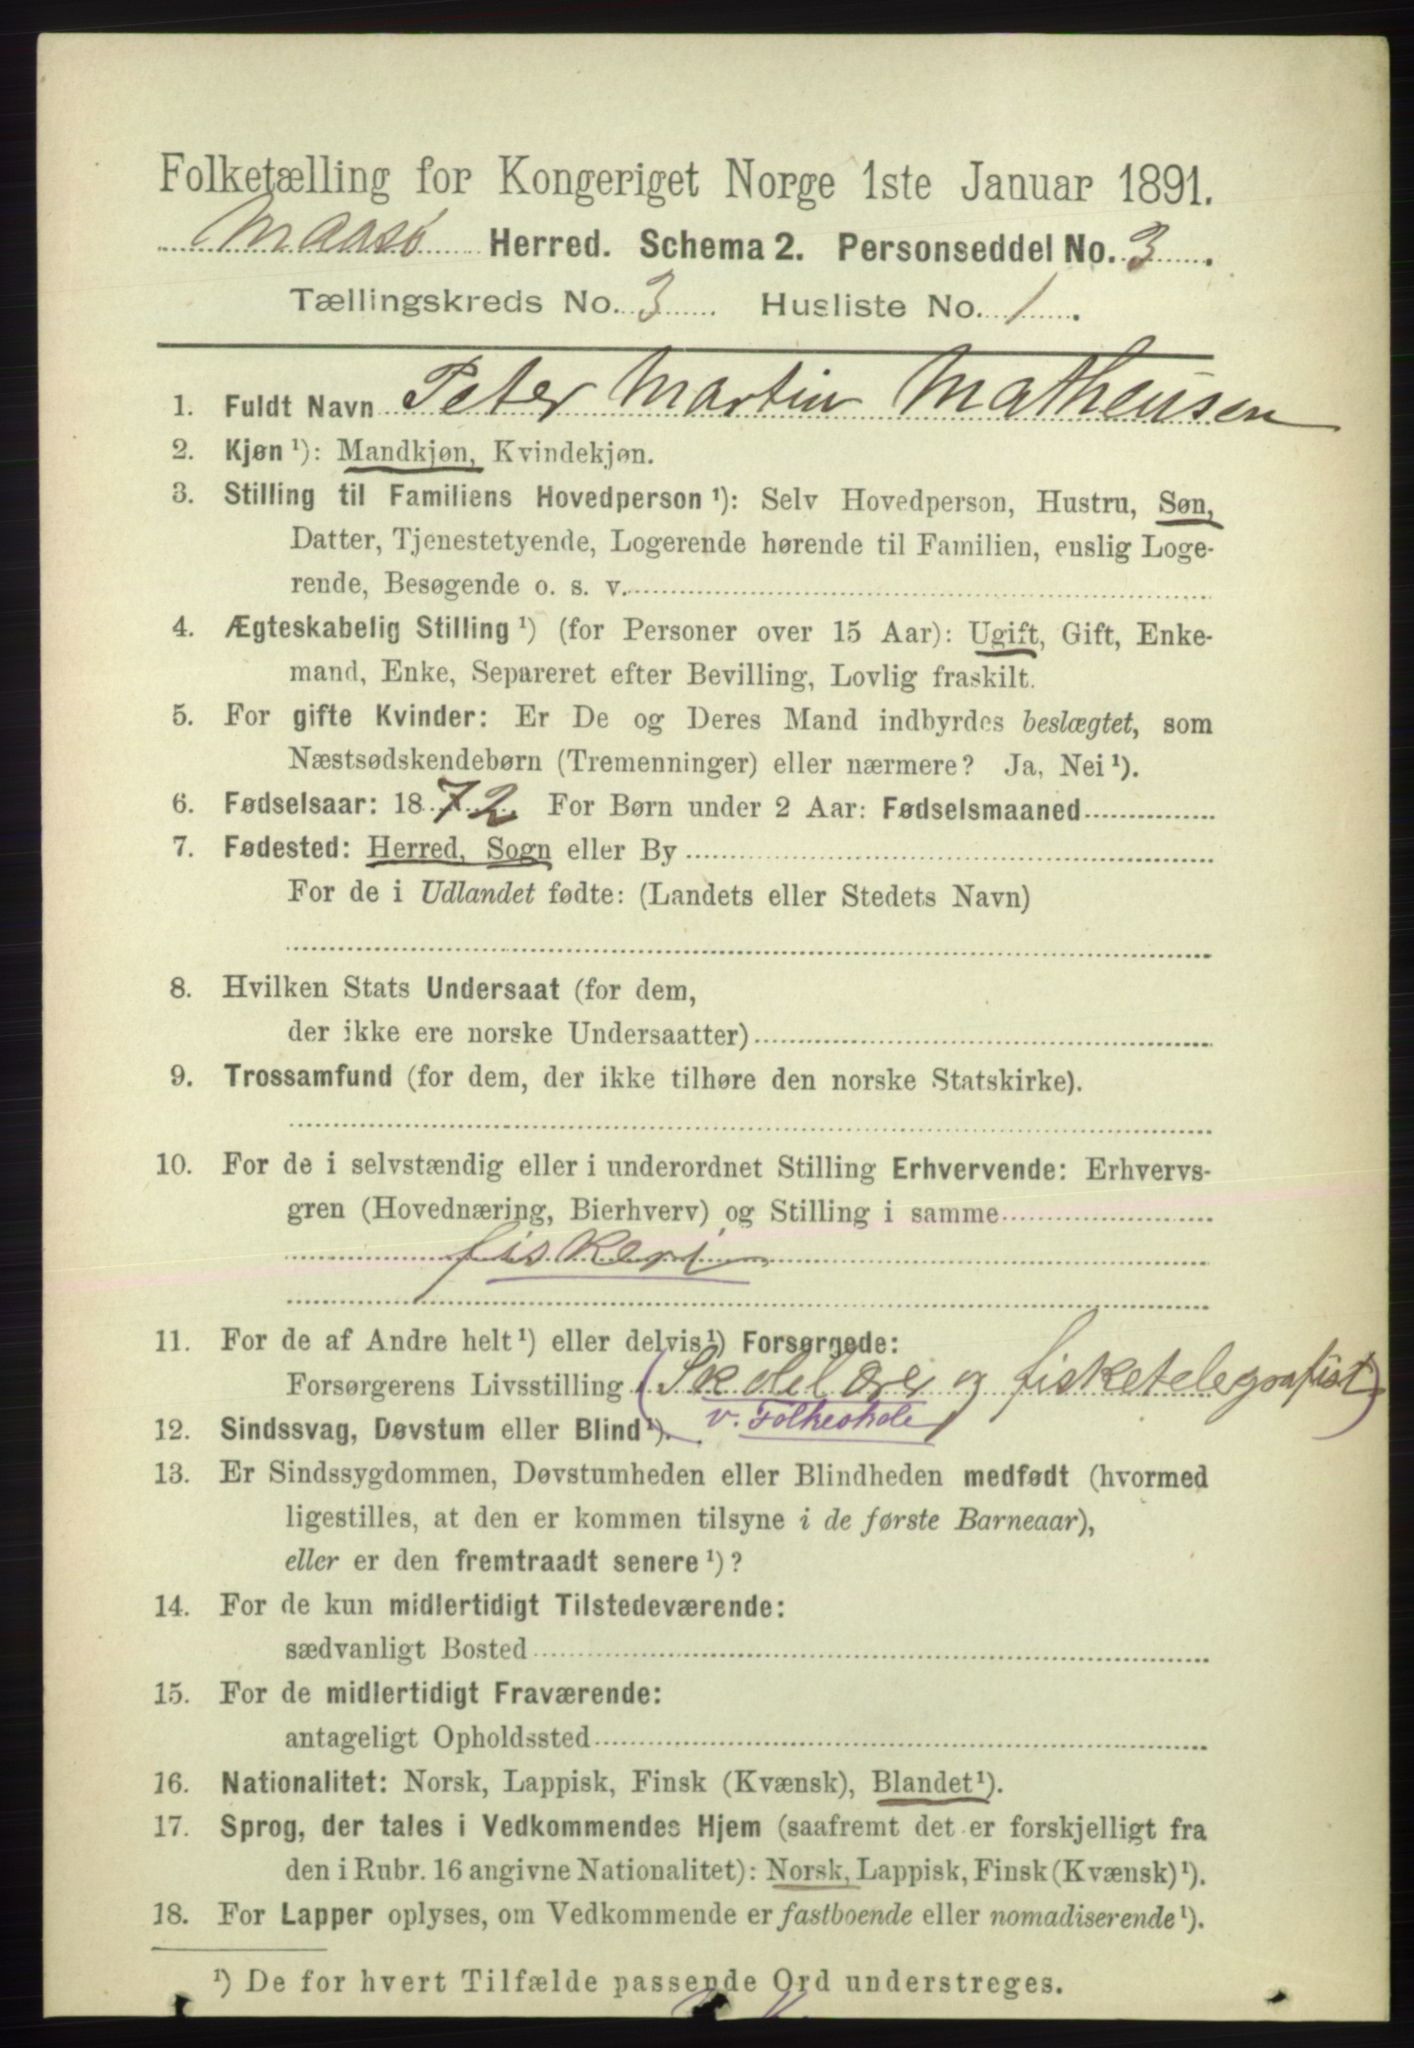 Folketælling for Kongeriget Norge 1ste Januar 1891.
Maasø Herred. Schema 2. Personseddel No. 3.
Tællingskreds No. 3. Husliste No. 1.
1. Fuldt Navn Peter Martin Matheusen
2. Kjøn ¹): Mandkjøn, Kvindekjøn.
3. Stilling til Familiens Hovedperson ¹): Selv Hovedperson, Hustru, Søn,
Datter, Tjenestetyende, Logerende hørende til Familien, enslig Loge-
rende, Besøgende o. s. v.
4. Ægteskabelig Stilling ¹) (for Personer over 15 Aar): Ugift, Gift, Enke-
mand, Enke, Separeret efter Bevilling, Lovlig fraskilt.
5. For gifte Kvinder: Er De og Deres Mand indbyrdes beslægtet, som
Næstsødskendebørn (Tremenninger) eller nærmere? Ja, Nei ¹).
6. Fødselsaar: 1872. For Børn under 2 Aar: Fødselsmaaned
7. Fødested: Herred, Sogn eller By
For de i Udlandet fødte: (Landets eller Stedets Navn)
8. Hvilken Stats Undersaat (for dem,
der ikke ere norske Undersaatter)
9. Trossamfund (for dem, der ikke tilhøre den norske Statskirke).
10. For de i selvstændig eller i underordnet Stilling Erhvervende: Erhvervs-
gren (Hovednæring, Bierhverv) og Stilling i samme
fiskeri
11. For de af Andre helt ¹) eller delvis ¹) Forsørgede:
Forsørgerens Livsstilling (Skolelærer og fisketelegrafist)
v. Folkeskole
12. Sindssvag, Døvstum eller Blind ¹).
13. Er Sindssygdommen, Døvstumheden eller Blindheden medfødt (hvormed
ligestilles, at den er kommen tilsyne i de første Barneaar),
eller er den fremtraadt senere ¹)?
14. For de kun midlertidigt Tilstedeværende:
sædvanligt Bosted
15. For de midlertidigt Fraværende:
antageligt Opholdssted
16. Nationalitet: Norsk, Lappisk, Finsk (Kvænsk), Blandet ¹).
17. Sprog, der tales i Vedkommendes Hjem (saafremt det er forskjelligt fra
den i Rubr. 16 angivne Nationalitet): Norsk, Lappisk, Finsk (Kvænsk) ¹).
18. For Lapper oplyses, om Vedkommende er fastboende eller nomadiserende ¹).
¹) De for hvert Tilfælde passende Ord understreges.